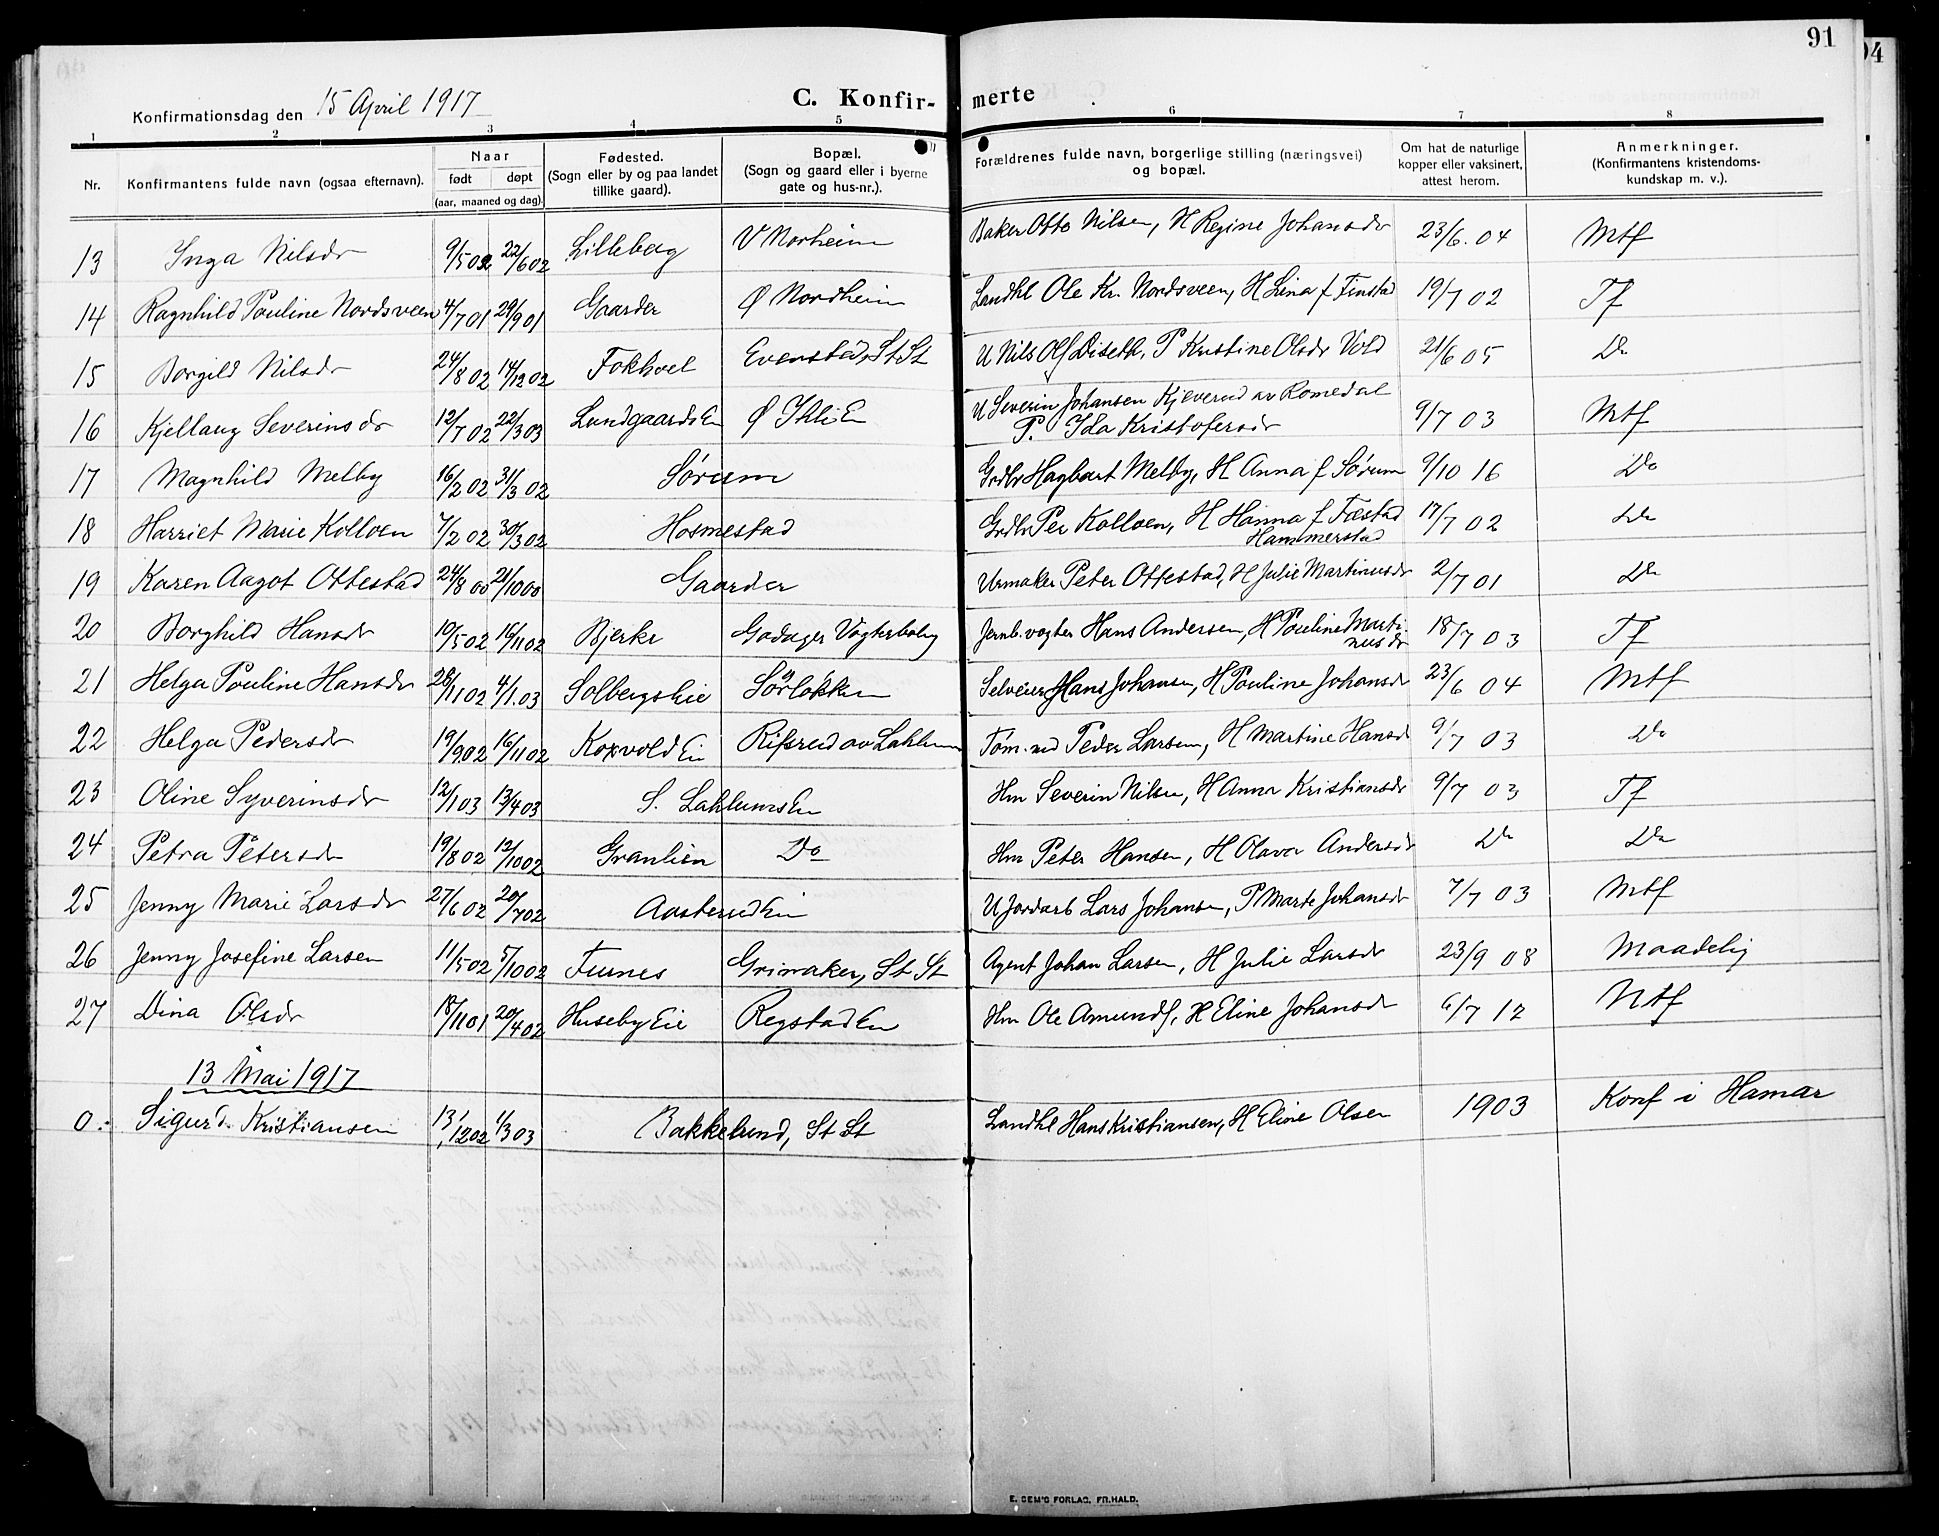 91
94
Konfirmationsdag den 15 April 1917
C. Konfir- merte
1 2 3 4 5 6 7 8
Nr. Konfirmantens fulde navn (ogsaa efternavn). Naar født døpt (aar, maaned og dag). Fødested. (Sogn eller by og paa landet tillike gaard). Bopæl. (Sogn og gaard eller i byerne gate og hus-nr.). Forældrenes fulde navn, borgerlige stilling (næringsvei) og bopæl. Om hat de naturlige kopper eller vaksinert, attest herom. Anmerkninger. (Konfirmantens kristendoms- kundskap m. v.).
13 Inga Nilsdr 9/5 02 22/6 02 Lilleberg V Norheim Baker Otto Nilsen, H Regine Johansdr 23/6. 04 Mtf
14 Ragnhild Pouline Nordsveen 4/7 01 29/9 01 Gaarder Ø Nordheim Landhl Ole Kr. Nordsveen, H Lina f Finstad 19/7 02 Tf
15 Borgild Nilsdr 24/8 02 14/12 02 Fokhvel Evenstad, St St U Nils Olf Diseth, P Kristine Olsdr Vold 21/6 05 Do
16 Kjellaug Severinsdr 12/7 02 22/3 03 LundgaardsE Ø IhliE U Severin Johansen Kjeverud av Romedal
P. Ida Kristofersdr 9/7 03 Mtf
17 Magnhild Melby 16/2 02 31/3 02 Sørum Grdbr Hagbart Melby, H Anna f Sørum 9/10 16 Do
18 Harriet Marie Kolloen 7/2 02 30/3 02 Hosmestad Grdbr Per Kolloen, H Hanna f Fæstad
Hammerstad 17/7 02 Do
19 Karen Aagot Ottestad 24/8 00 21/10 00 Gaarder Urmaker Peter Ottestad, H Julie Martinusdr 2/7 01 Do
20 Borghild Hansdr 19/5 02 16/11 02 Bjerke Godager Vogterbolig Jernb.vogter Hans Andersen, H Pouline Marti-
nusdr 18/7 03 Tf
21 Helga Pouline Hansdr 28/11 02 4/1.03 Solbergseie Sørløkken Selveier Hans Johansen, H Pouline Johansdr 23/6 04 Mtf
22 Helga Pedersdr 19/9 02 16/11 02 Koxvold Ei Rifsrud av Lahlum Tøm.md Peder Larsen, H Martine Hansd 9/7 03 Do
23 Oline Syverinsdr 12/1 03 13/4 03 S. LahlumsEn Hm Severin Nilsen, H Anna Kristiansdr 9/7 03 Tf
24 Petra Petersdr 19/8 02 12/10 02 Granlien Do Hm Peter Hansen, H Olava Andersdr Do Do
25 Jenny Marie Larsdr 27/6 02 20/7 02 AasterudEin U Jordarb Lars Johansen, P Marte Johansdr 7/7 03 Mtf
26 Jenny Josefine Larsen 11/5 02 5/10 02 Furnes Grimaker, St St Agent Johan Larsen, H Julie Larsdr 23/9 08 Maadelig
27 Dina Olsdr 18/11 01 20/4 02 Huseby Eie RegstadEn Hm Ole Amundf, H Eline Johansdr 6/7 12 Ntf
13 Mai 1917
0. Sigurd Kristiansen 13/12 02 1/3 03 Bakkelund, St St Landhl Hans Kristiansen, H Eline Olsen 1903 Konf i Hamar
E. SEM'S FORLAG, FR.HALD.